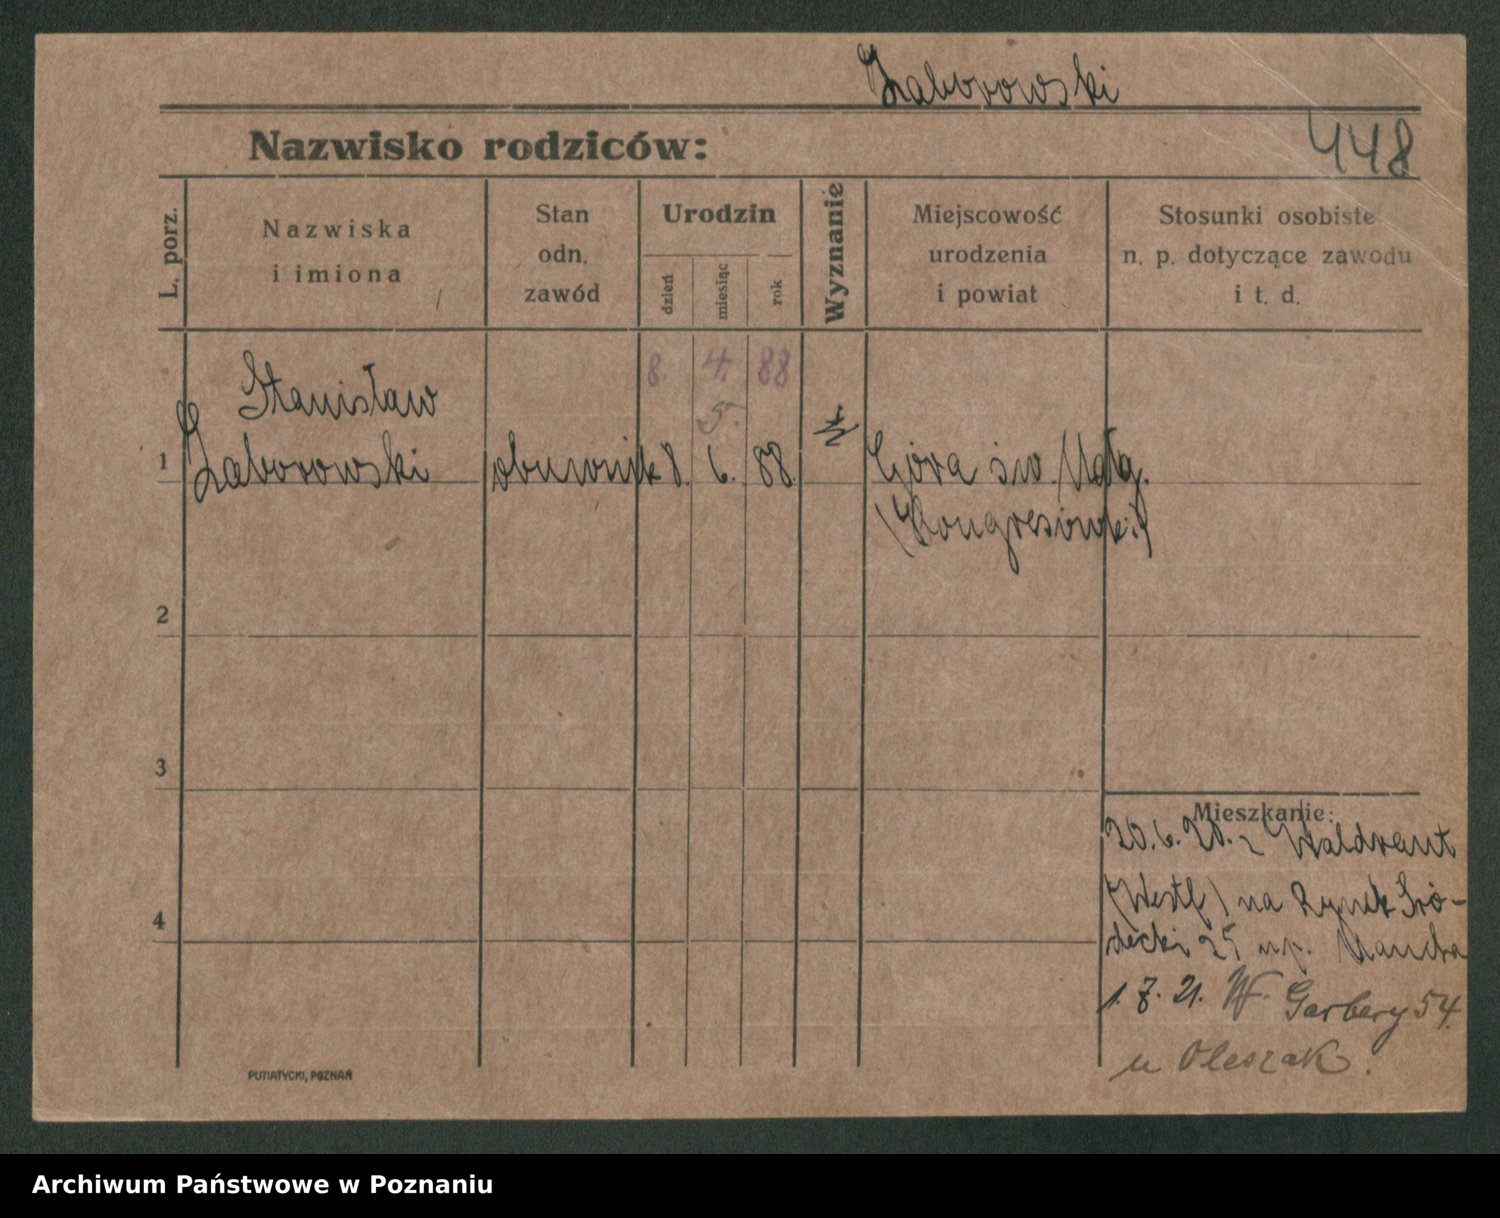 Zaborowski
Nazwisko rodziców:
448
L. porz.
Nazwiska
i imiona
Stan
odn.
zawód
Urodzin
dzień
miesiąc
rok
Wyznanie
Miejscowość
urodzenia
i powiat
Stosunki osobiste
n. p. dotyczące zawodu
i t. d.
8. 4. 88
5.
Stanisław
1 Zaborowski obuwnik 8. 6. 88. Góra św. Małg.
(Kongresówk.)
2
3
4
Mieszkanie:
20. 6. 20. z
(Westf) na Rynek Śró-
decki 25 u p.
1. 7. 21. W. Garbary 54.
u Oleszak.
PUTIATYCKI, POZNAŃ
Archiwum Państwowe w Poznaniu